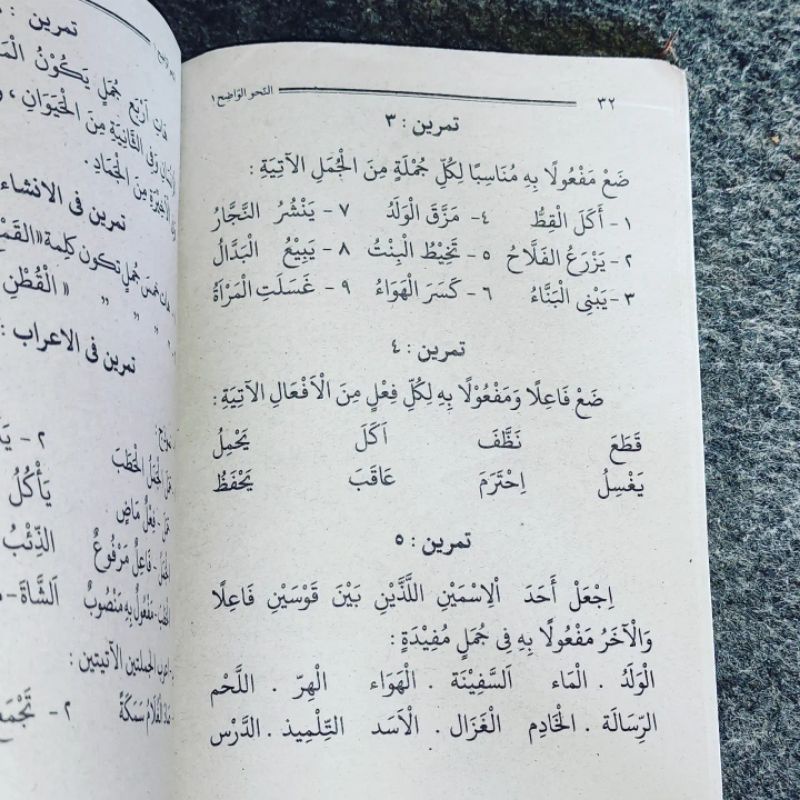 ٣٢ النحو الواضح ١
تمرين : ٣
ضَعْ مَفْعُولًا بِهِ مُنَاسِبًا لِكُلِّ جُمْلَةٍ مِنَ الْجُمَلِ الآتِيَةِ :
١ - أَكَلَ الْقِطُّ ٤- مَزَّقَ الْوَلَدُ ٧ - يَنْشُرُ النَّجَّارُ
٢- يَزْرَعُ الفَلَّاحُ ٥ - تَخِيْطُ الْبِنْتُ ٨ - يَبِيْعُ الْبَدَّالُ
٣ - يَبْنِى الْبَنَّاءُ ٦ - كَسَرَ الْهَوَاءُ ٩ - غَسَلَتِ الْمَرْاَةُ
تمرين : ٤
ضَعْ فَاعِلًا وَمَفْعُوْلًا بِهِ لِكُلِّ فِعْلٍ مِنَ الْاَفْعَالِ الآتِيَةِ :
قَطَعَ نَظَّفَ اَكَلَ يَحْمِلُ
يَغْسِلُ اِحْتَرَمَ عَاقَبَ يَحْفَظُ
تمرين : ٥
اِجْعَلْ أَحَدَ الْاِسْمَيْنِ اللَّذَيْنِ بَيْنَ قَوْسَيْنِ فَاعِلًا
وَالْآخَرَ مَفْعُولًا بِهِ فِى جُمَلٍ مُفِيْدَةٍ :
الْوَلَدُ . الْمَاء اَلسَّفِيْنَة . الْهَوَاء الْهِرّ . اللَّحْم
الرِّسَالَة . الْخَادِم الْغَزَال . الْاَسَد التِّلْمِيذ . الدَّرْس
تمرين :
هَاتِ أَرْبَعَ جُمَلٍ يَكُوْنُ
وَفِى الثَّانِيَةِ مِنَ الْحَيَوَانِ ،
الْاَخِيْرَةِ مِنَ الْجَمَادِ .
تمرين فى الانشاء
هَاتِ خَمْسَ جُمَلٍ تكون كلِمة
" " " « الْقُطْنِ
تمرين فى الاعراب :
نموذج : ٢ -
الْجَمَلُ الْحَطَبَ
فِعْلٌ مَاضٍ يَأْكُلُ
الجمل - فَاعِلٌ مَرْفُوعٌ الذِّئْبُ
الحطب - مَفْعُوْلٌ بِهِ مَنْصُوبٌ اَلشَّاةَ -
اعرب الجملتين الآتيتين :
الْغُلَامُ سَمَكَةً ٢ -